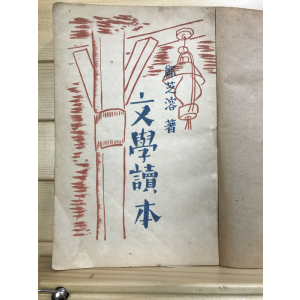 鄭芝溶 著
文學讀本